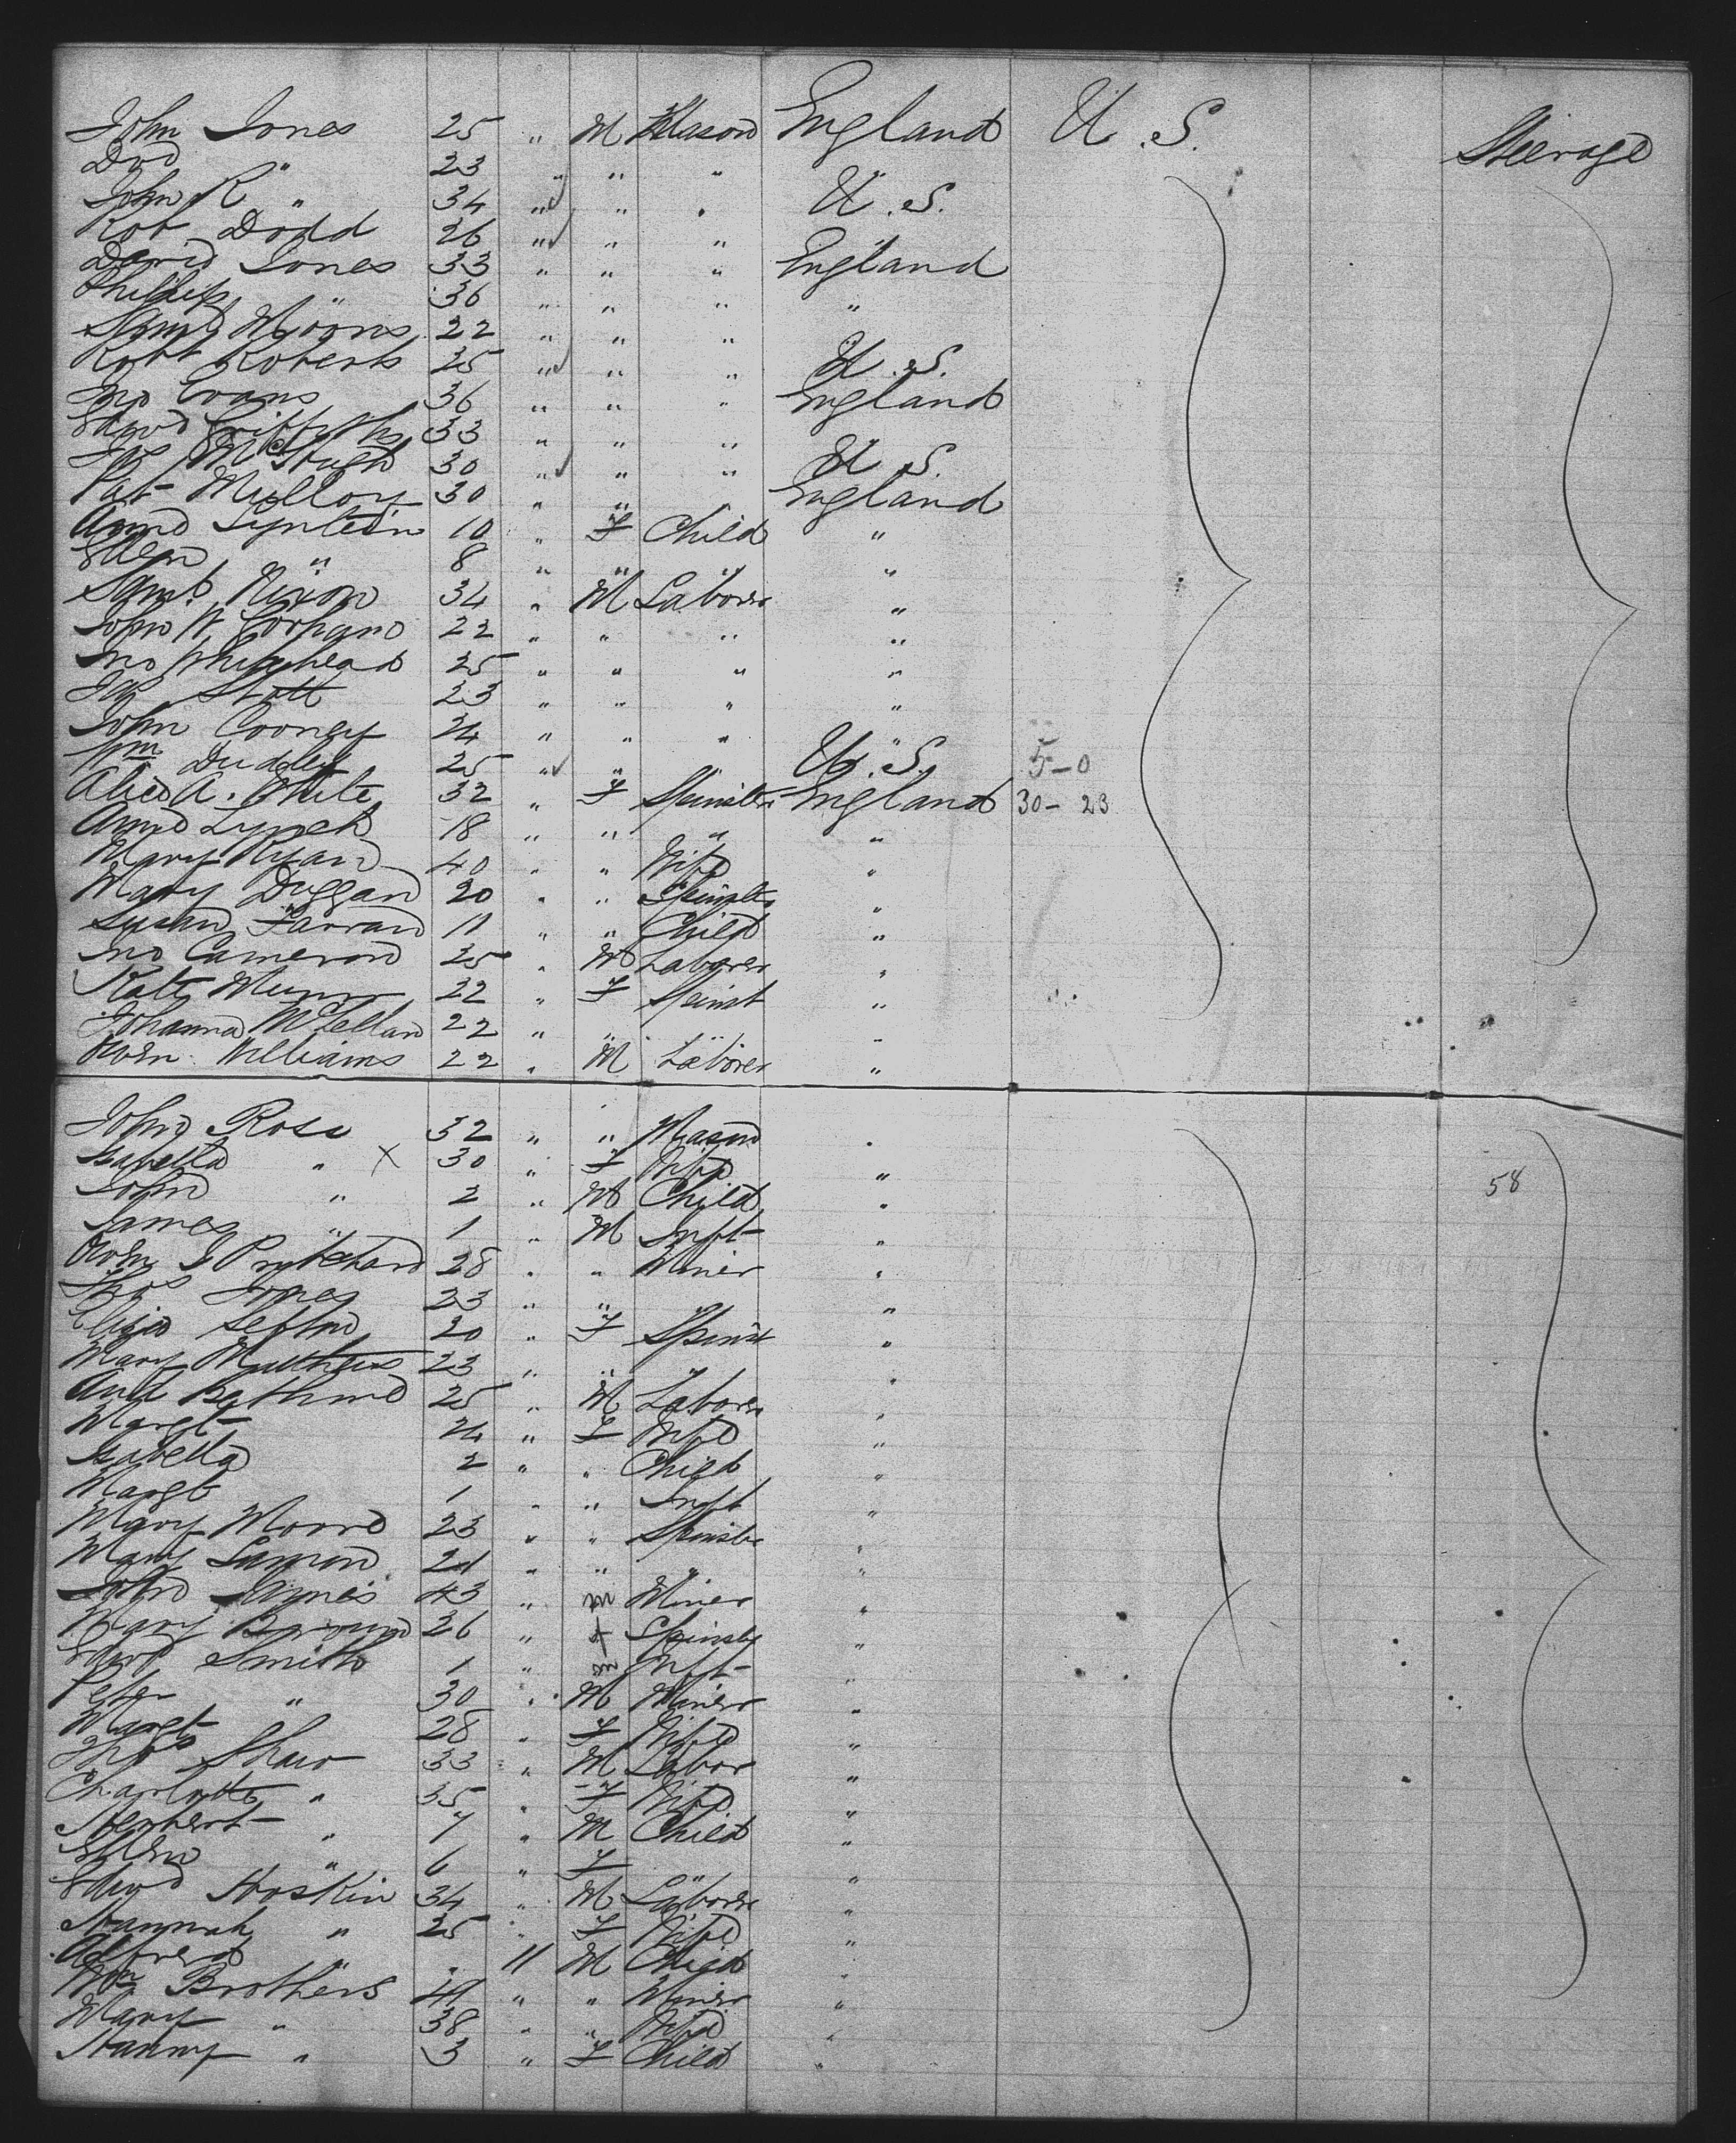 John Jones 25 " M Mason England U.S. Steerage
Dvd " 23 " " "
John R " 34 " " " U.S.
Rob Dodd 26 " " "
David Jones 33 " " " England
Phillip " 36 " " " "
Saml Moons 22 " " "
Robt Roberts 25 " " " U.S.
Jno Evans 36 " " " England
Edwd Griffiths 33 " " "
Jas McHugh 30 " " " U.S.
Pat Mulloy 30 " " England
Anne 10 " F Child "
Ellen " 8 " " " "
Saml Nixon 34 " M Laborer "
John W. 22 " " " "
Jno Whitehead 25 " " " "
Jas Stott 23 " " " "
John Cooney 24 " " " "
Wm Dudley 25 " " U.S. 5-0
Alice A. White 32 " F Spinster England 30-23
Anne Lynch 18 " " " "
Mary Ryan 40 " " Wife "
Mary Duggan 20 " " Spinster "
Susan Farran 11 " " Child "
Jno Cameron 25 " M Laborer "
Kate Munro 22 " F Spinst "
Johanna McLellan 22 " " " "
Owen Williams 22 " M Laborer "
John Ross 32 " " Mason "
Isabella " X 30 " F Wife "
John " 2 " M Child " 58
James " 1 " M Inft "
Owen J Pritchard 28 " " Miner "
Thos Jones 23 " " " "
Eliza Sefton 20 " F Spinst "
Mary Matthews 23 " " " "
And 25 " M Laborer "
Margt 24 " F Wife "
Isabella 2 " " Child "
Margt 1 " " Inft "
Mary Moore 23 " " Spinster "
Mary Lamond 21 " " " "
John James 43 " m Miner "
Mary Brown 26 " f Spinster "
Edwd Smith 1 " m Inft "
Peter " 30 " M Miner "
Margt 28 " F Wife "
Thos Shaw 33 " M Labor "
Charlotte " 35 " F Wife "
Herbert " 7 " M Child "
Ellen " 6 " F " "
Edwd Hoskin 34 " M Laborer "
Hannah " 25 " F Wife "
Alfred " " 11 M Child "
Wm Brothers 49 " " Miner "
Mary " 38 " " Wife "
Hanny " 3 " F Child "